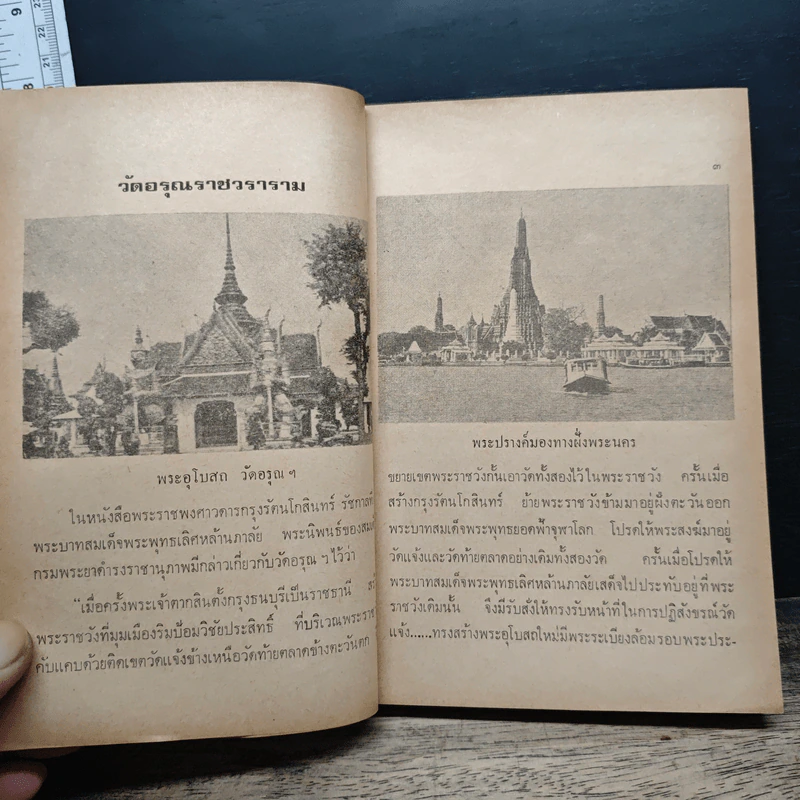 วัดอรุณราชวราราม
พระอุโบสถ วัดอรุณฯ
ในหนังสือพระราชพงศาวดารกรุงรัตนโกสินทร์ รัชกาลที่
พระบาทสมเด็จพระพุทธเลิศหล้านภาลัย พระนิพนธ์ของสม
กรมพระยาดำรงราชานุภาพมีกล่าวเกี่ยวกับวัดอรุณ ฯ ไว้ว่า
"เมื่อครั้งพระเจ้าตากสินตั้งกรุงธนบุรีเป็นราชธานี
พระราชวังที่มุมเมืองริมป้อมวิชัยประสิทธิ์ ที่บริเวณพระรา
คับแคบด้วยติดเขตวัดแจ้งข้างเหนือวัดท้ายตลาดข้างตะวันตก
๓
พระปรางค์มองทางฝั่งพระนคร
ขยายเขตพระราชวังกั้นเอาวัดทั้งสองไว้ในพระราชวัง ครั้นเมื่อ
สร้างกรุงรัตนโกสินทร์ ย้ายพระราชวังข้ามมาอยู่ฝั่งตะวันออก
พระบาทสมเด็จพระพุทธยอดฟ้าจุฬาโลก โปรดให้พระสงฆ์มาอยู่
วัดแจ้งและวัดท้ายตลาดอย่างเดิมทั้งสองวัด ครั้นเมื่อโปรดให้
พระบาทสมเด็จพระพุทธเลิศหล้านภาลัยเสด็จไปประทับอยู่ที่พระ
ราชวังเดิมนั้น จึงมีรับสั่งให้ทรงรับหน้าที่ในการปฏิสังขรณ์วัด
แจ้ง......ทรงสร้างพระอุโบสถใหม่มีพระระเบียงล้อมรอบพระประ-
9
8
23
22
21